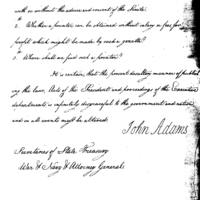 with or without the advice and consent of the Senate.
2. Whether a printer can be obtained without salary or fees for
profit which might be made by such a gazette?
3. Where shall we find such a printer?
It is certain, that the present desultory manner of publish-
ing the laws, Acts of the President and proceedings of the Executive
departments is infinitely disgraceful to the government and nation
and in all events must be altered.
John Adams
Secretaries of State, Treasury
War & Navy & Attorney General.